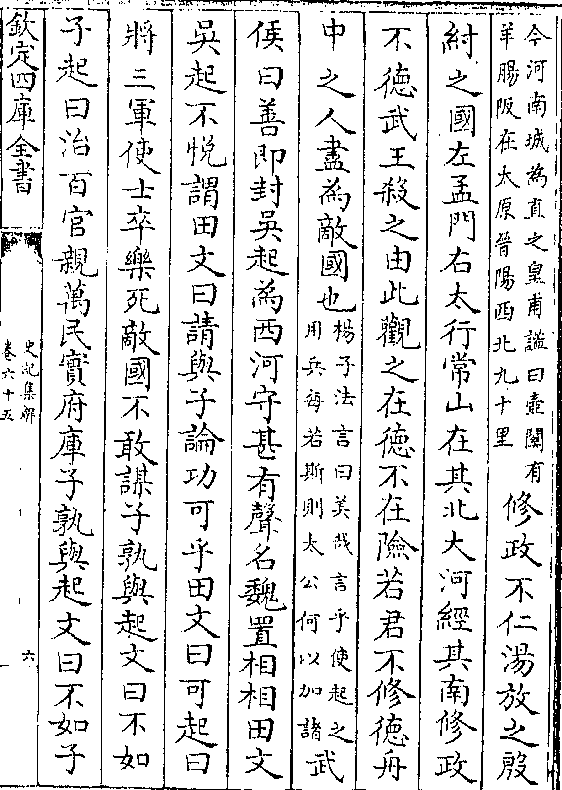 今河南城為直之皇甫謐曰壺關有
羊腸阪在太原晉陽西北九十里
修政不仁湯放之殷
紂之國左孟門右太行常山在其北大河經其南修政
不德武王殺之由此觀之在德不在險若君不修德舟
中之人盡為敵國也
楊子法言曰美哉言乎使起之
用兵每若斯則太公何以加諸
武
侯曰善即封吳起為西河守甚有聲名魏置相相田文
吳起不悅謂田文曰請與子論功可乎田文曰可起曰
將三軍使士卒樂死敵國不敢謀子孰與起文曰不如
子起曰治百官親萬民實府庫子孰與起文曰不如子
欽定四庫全書
史記集解
卷六十五
六